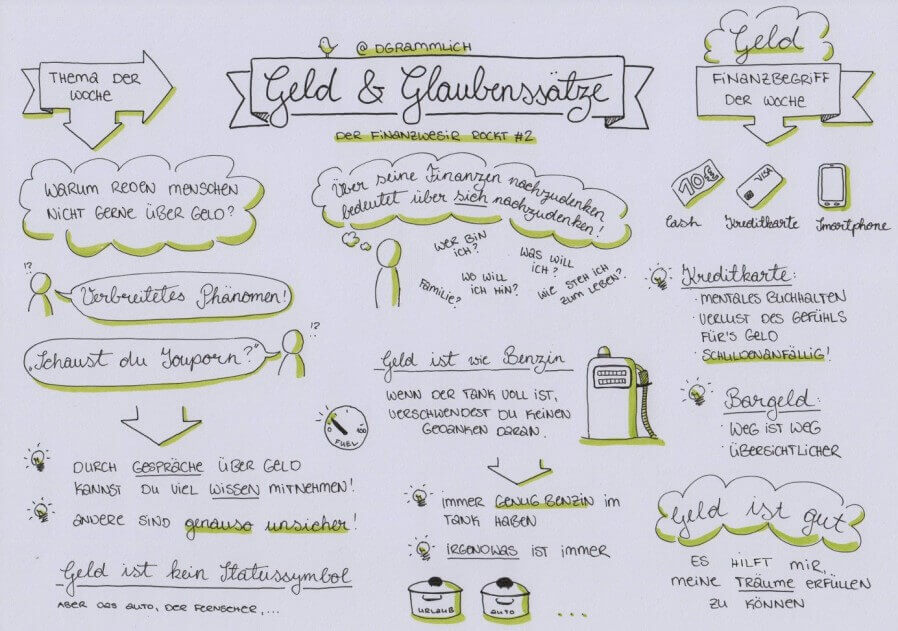 @ DGRAMMLICH
Geld & Glaubenssätze
DER FINANZWESIR ROCKT #2
THEMA DER
WOCHE
WARUM REDEN MENSCHEN
NICHT GERNE ÜBER GELD?
!?
Verbreitetes Phänomen!
!?
"Schaust du Youporn?"
DURCH GESPRÄCHE ÜBER GELD
KANNST DU VIEL WISSEN MITNEHMEN!
ANDERE SIND genauso unsicher!
Geld ist kein Statussymbol
ABER DAS AUTO, DER FERNSEHER,...
Über seine Finanzen nachzudenken
bedeutet über sich nachzudenken!
WER BIN
ICH?
WAS WILL
ICH?
FAMILIE?
WO WILL
ICH HIN?
WIE STEH ICH
ZUM LEBEN?
Geld ist wie Benzin
WENN DER TANK VOLL IST,
VERSCHWENDEST DU KEINEN
GEDANKEN DARAN.
0 100
FUEL
IMMER GENUG BENZIN IM
TANK HABEN
IRGENDWAS IST IMMER
URLAUB
AUTO
...
Geld
FINANZBEGRIFF
DER WOCHE
10€
VISA
Cash
Kreditkarte
Smartphone
Kreditkarte:
· MENTALES BUCHHALTEN
· VERLUST DES GEFÜHLS
FÜR'S GELD
· SCHULDENANFÄLLIG!
Bargeld:
· WEG IST WEG
· ÜBERSICHTLICHER
Geld ist gut
ES HILFT MIR,
MEINE TRÄUME ERFÜLLEN
ZU KÖNNEN